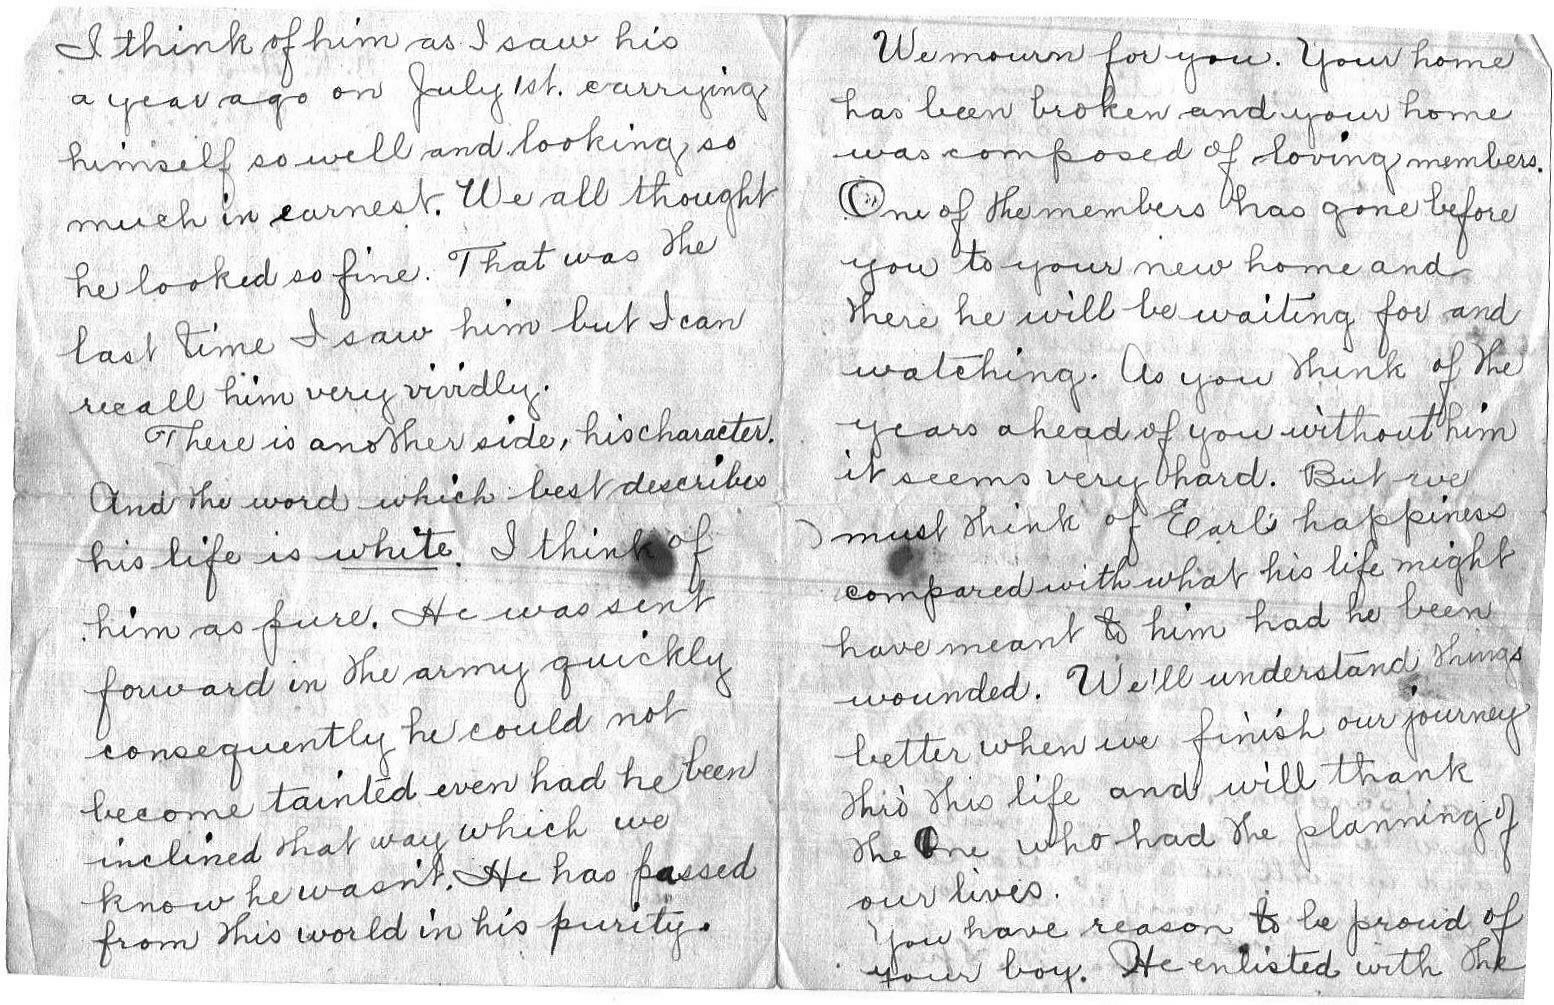 I think of him as I saw his
a year ago on July 1st. carrying
himself so well and looking so
much in earnest. We all thought
he looked so fine. That was the
last time I saw him but I can
recall him very vividly.
There is another side, his character.
And the word which best describes
his life is white. I think of
him as pure. He was sent
forward in the army quickly
consequently he could not
become tainted even had he been
inclined that way which we
know he wasn't. He has passed
from this world in his purity.
We mourn for you. Your home
has been broken and your home
was composed of loving members.
One of the members has gone before
you to your new home and
there he will be waiting for and
watching. As you think of the
years ahead of you without him
it seems very hard. But we
must think of Earl's happiness
compared with what his life might
have meant to him had he been
wounded. We'll understand things
better when we finish our journey
thro this life and will thank
the One who had the planning of
our lives.
You have reason to be proud of
your boy. He enlisted with the